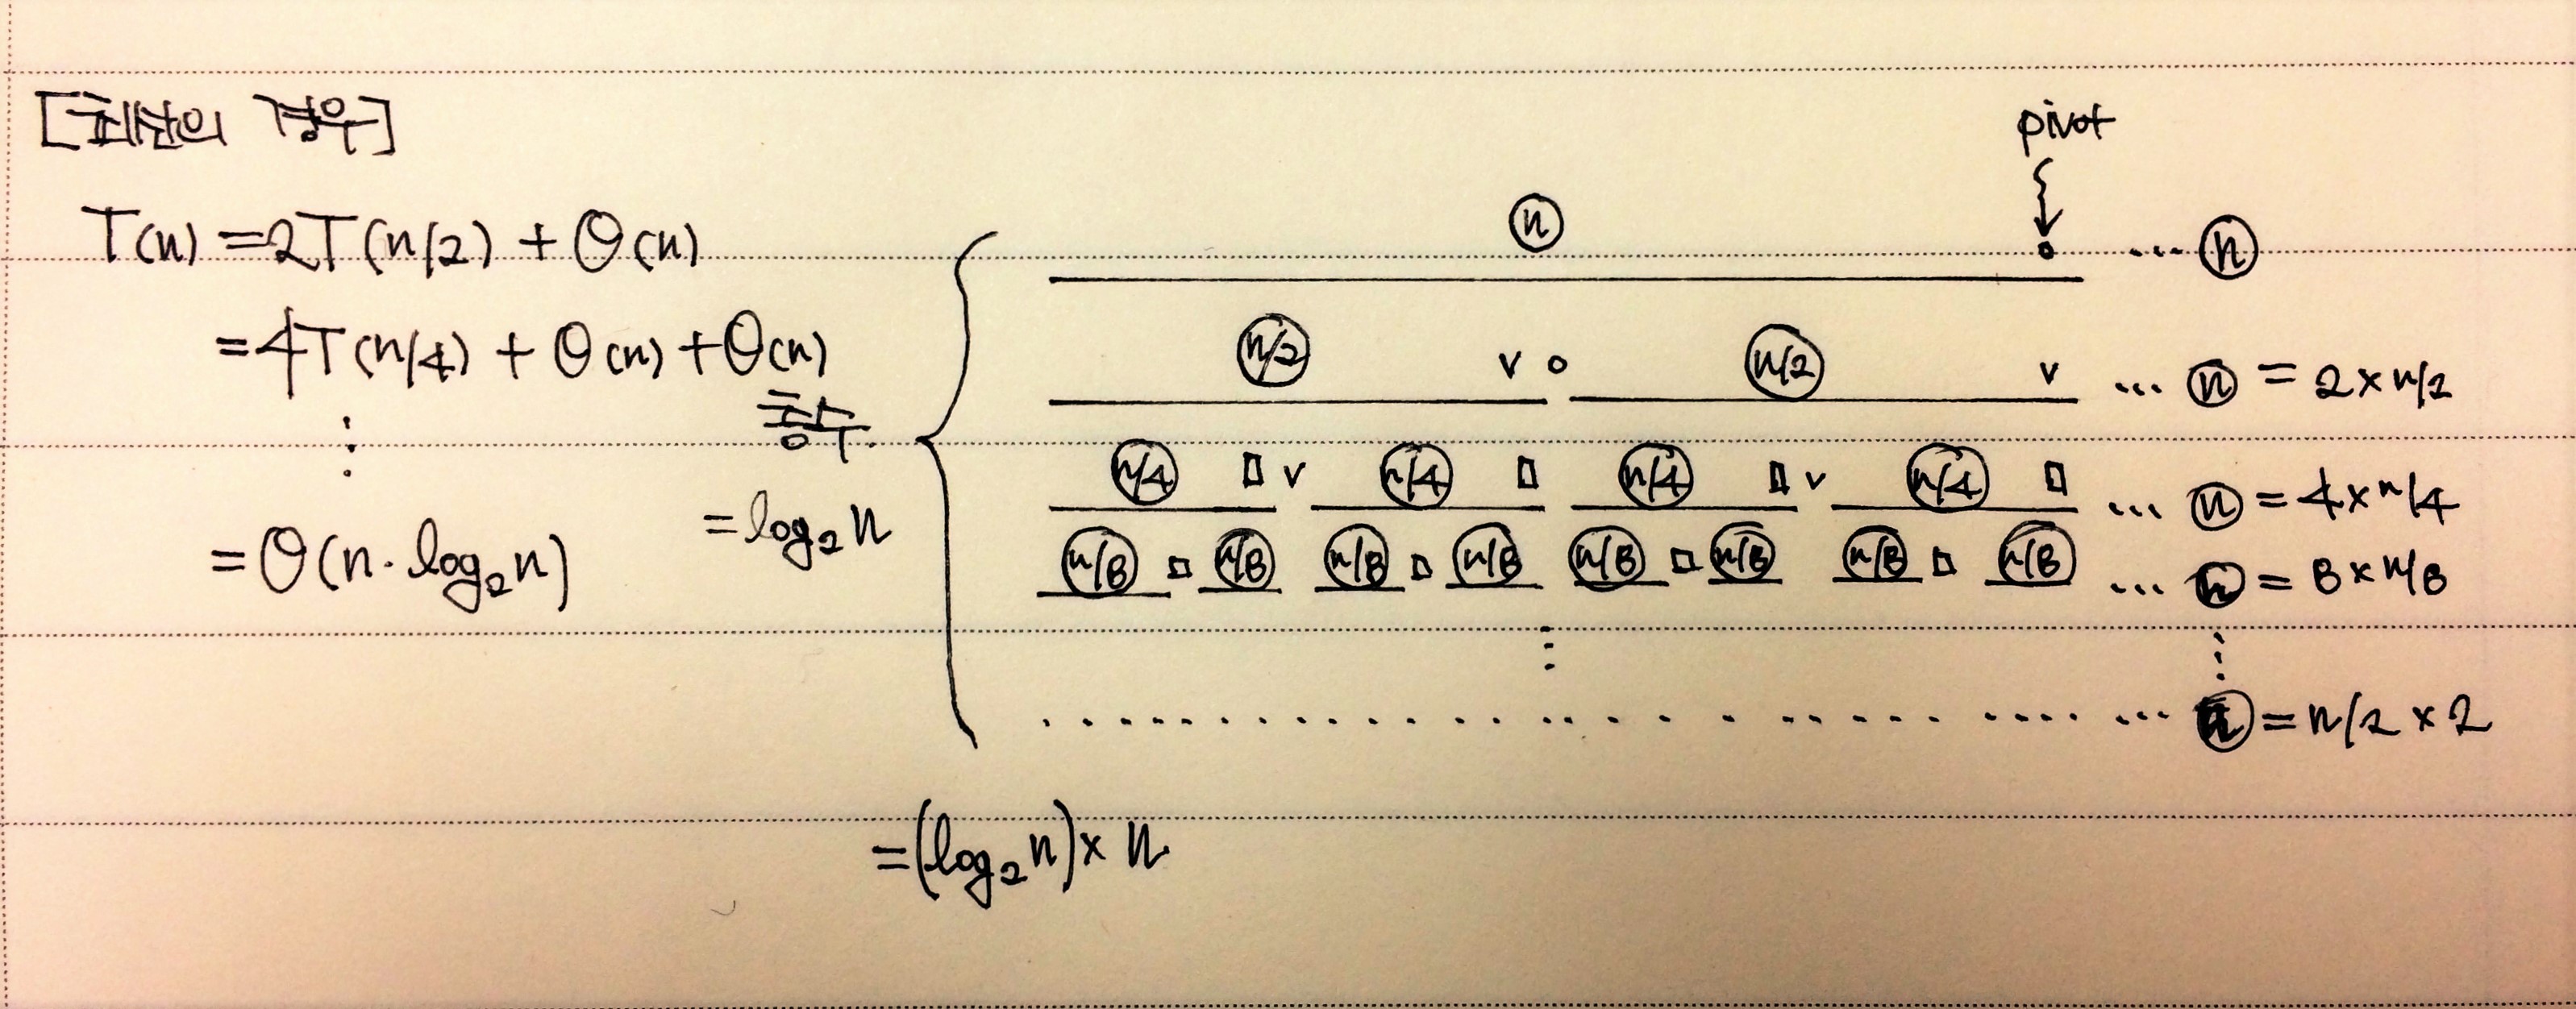 [최선의 경우]
pivot
T(n) = 2T(n/2) + Θ(n)
= 4T(n/4) + Θ(n) + Θ(n)
⋮
= Θ(n·log₂n)
층수
= log₂n
n ... n
n/2 v o n/2 v ... n = 2 × n/2
n/4 □ v n/4 □ n/4 □ v n/4 □ ... n = 4 × n/4
n/8 □ n/8 n/8 □ n/8 n/8 □ n/8 n/8 □ n/8 ... n = 8 × n/8
⋮ ⋮
... n = n/2 × 2
= (log₂n) × n